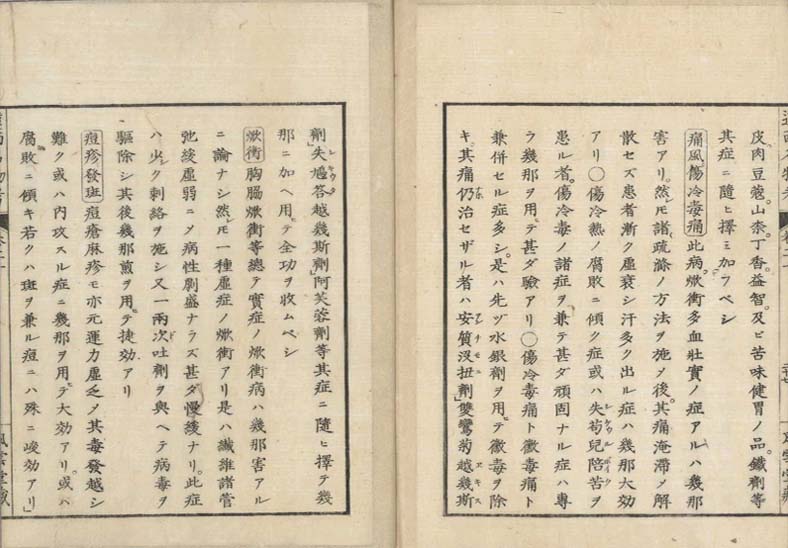 皮肉豆蔻。山柰。丁香。益智。及ヒ苦味健胃ノ品。鐵劑等
其症ニ隨ヒ擇ミ加フベシ
痛風傷冷毒痛 此病。焮衝多血壯實ノ症アルハ幾那
害アリ。然ﾄﾞモ諸疏滌ノ方法ヲ施メ後。其痛淹滯メ解
散セズ患者漸ク虛衰シ汗多ク出ル症ハ幾那大効
アリ〇傷冷熱ノ腐敗ニ傾ク症或ハ失苟兒陪苦ヲ
患ル者。傷冷毒ノ諸症ヲ兼テ甚ダ頑固ナル症ハ專
ラ幾那ヲ用テ甚ダ驗アリ〇傷冷毒痛ト黴毒痛ト
兼併セル症多シ。是ハ先ヅ水銀劑ヲ用テ黴毒ヲ除
キ。其痛仍治セザル者ハ安質沒扭劑」雙鸞菊越幾斯
劑」失鳩答越幾斯劑」阿芙蓉劑等其症ニ隨ヒ擇テ幾
那ニ加ヘ用テ全功ヲ收ムベシ
焮衝 胸膈焮衝等總テ實症ノ焮衝病ハ幾那害アル
ニ論ナシ然ﾄﾞモ一種虛症ノ焮衝アリ是ハ纖維諸管
弛緩虛弱ニメ病性劇盛ナラズ甚ダ慢緩ナリ。此症
ハ少ク刺絡ヲ施シ又一兩次吐劑ヲ與ヘテ病毒ヲ
驅除シ其後幾那煎ヲ用テ捷効アリ
痘疹發斑 痘瘡麻疹モ亦元運力虛乏メ其毒發越シ
難ク或ハ内攻スル症ニ幾那ヲ用テ大効アリ。或ハ
腐敗ニ傾キ若クハ斑ヲ兼ル痘ニハ殊ニ峻効アリ」